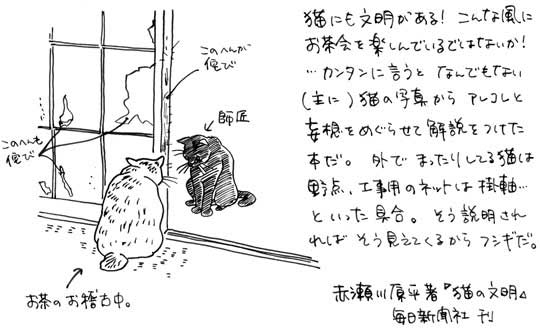 猫にも文明がある! こんな風に
お茶会を楽しんでいるではないか!
…カンタンに言うと なんでもない
(主に)猫の写真から アレコレと
妄想をめぐらせて解説をつけてた
本だ。 外で まったりしてる猫は
野点、工事用のネットは掛軸…
といった具合。 そう説明され
れば そう見えてくるから フシギだ。
赤瀬川原平著『猫の文明』
毎日新聞社 刊
このへんが
侘び
師匠
このへんも
侘び
お茶のお稽古中。